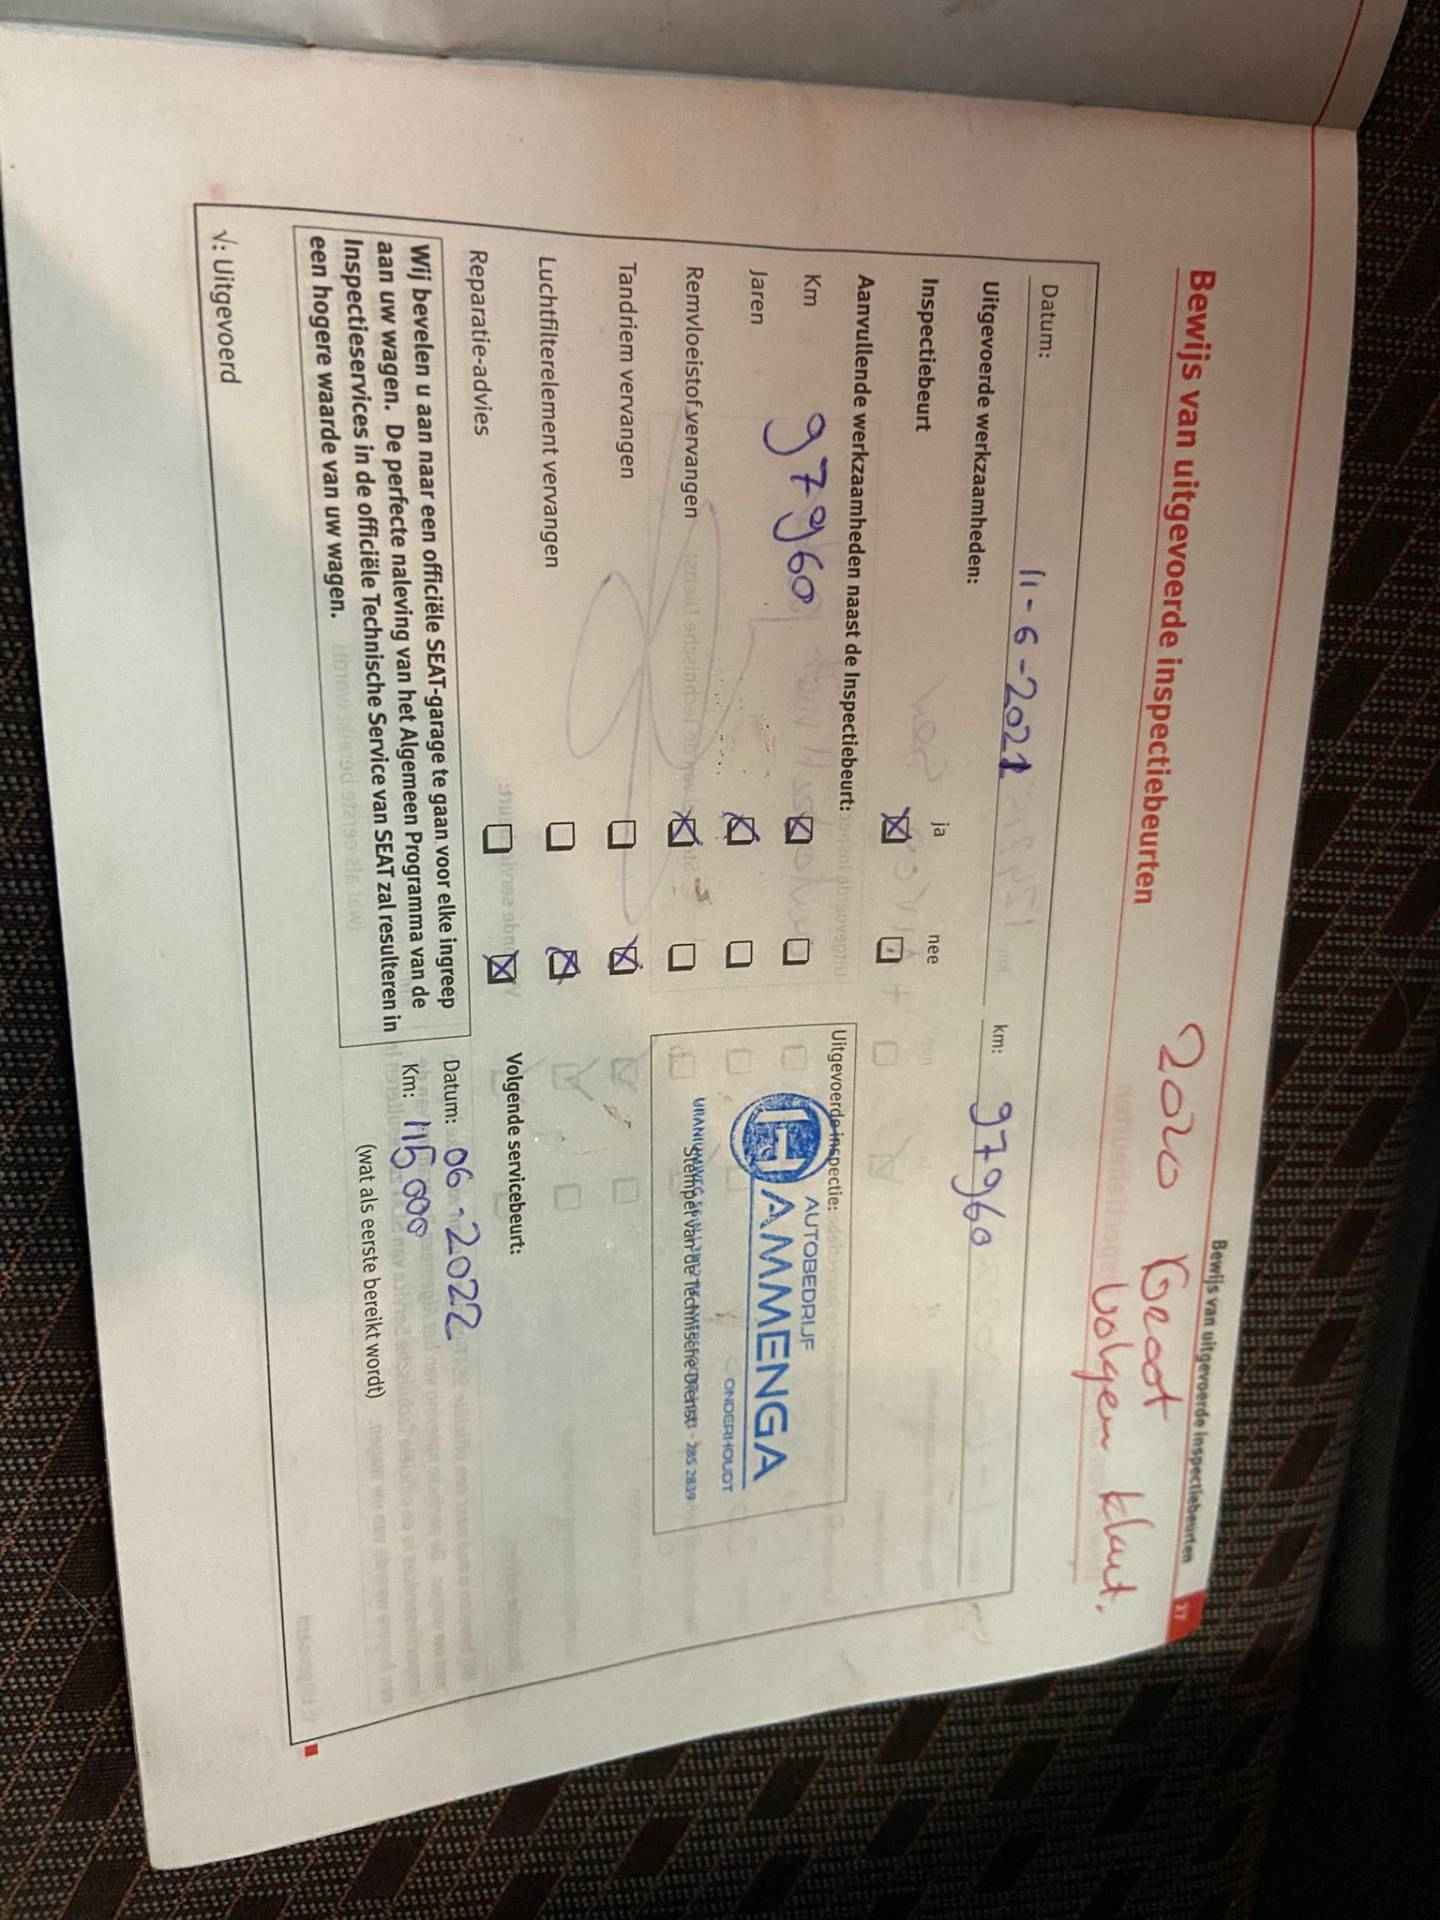 Bewijs van uitgevoerde inspectiebeurten 27
Bewijs van uitgevoerde inspectiebeurten
2020 Groot
volgen klant.
Datum: 11-6-2021 km: 97960
Uitgevoerde werkzaamheden:
ja nee
Inspectiebeurt
Aanvullende werkzaamheden naast de Inspectiebeurt:
Km 97960
Jaren
Remvloeistof vervangen
Tandriem vervangen
Luchtfilterelement vervangen
Reparatie-advies
Uitgevoerde inspectie:
AUTOBEDRIJF
HAMMENGA
ONDERHOUDT
URANIUMWEG
Stempel van de Technische Dienst
Volgende servicebeurt:
Datum: 06-2022
Km: 115 000
(wat als eerste bereikt wordt)
Wij bevelen u aan naar een officiële SEAT-garage te gaan voor elke ingreep
aan uw wagen. De perfecte naleving van het Algemeen Programma van de
Inspectieservices in de officiële Technische Service van SEAT zal resulteren in
een hogere waarde van uw wagen.
√: Uitgevoerd